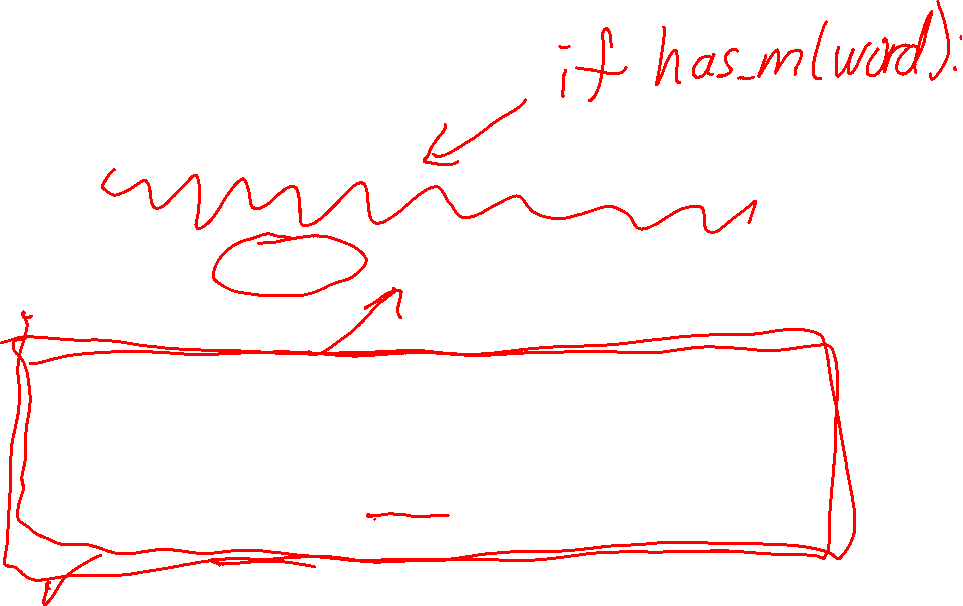 if has_m(word):